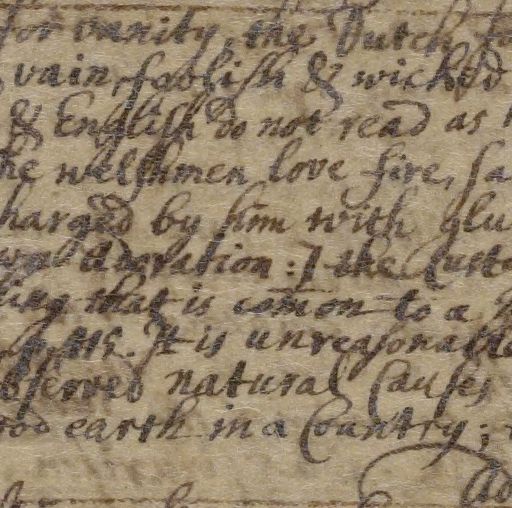 for vanity, the Dutch fo
vain, foolish & wicked
& English do not read as
he welshmen love fire, sa
harged by him with glu
Adoration : J the Custo
that is comon to a
It is unreasonable
bserved natural Causes
ood earth in a Country ;
Ad